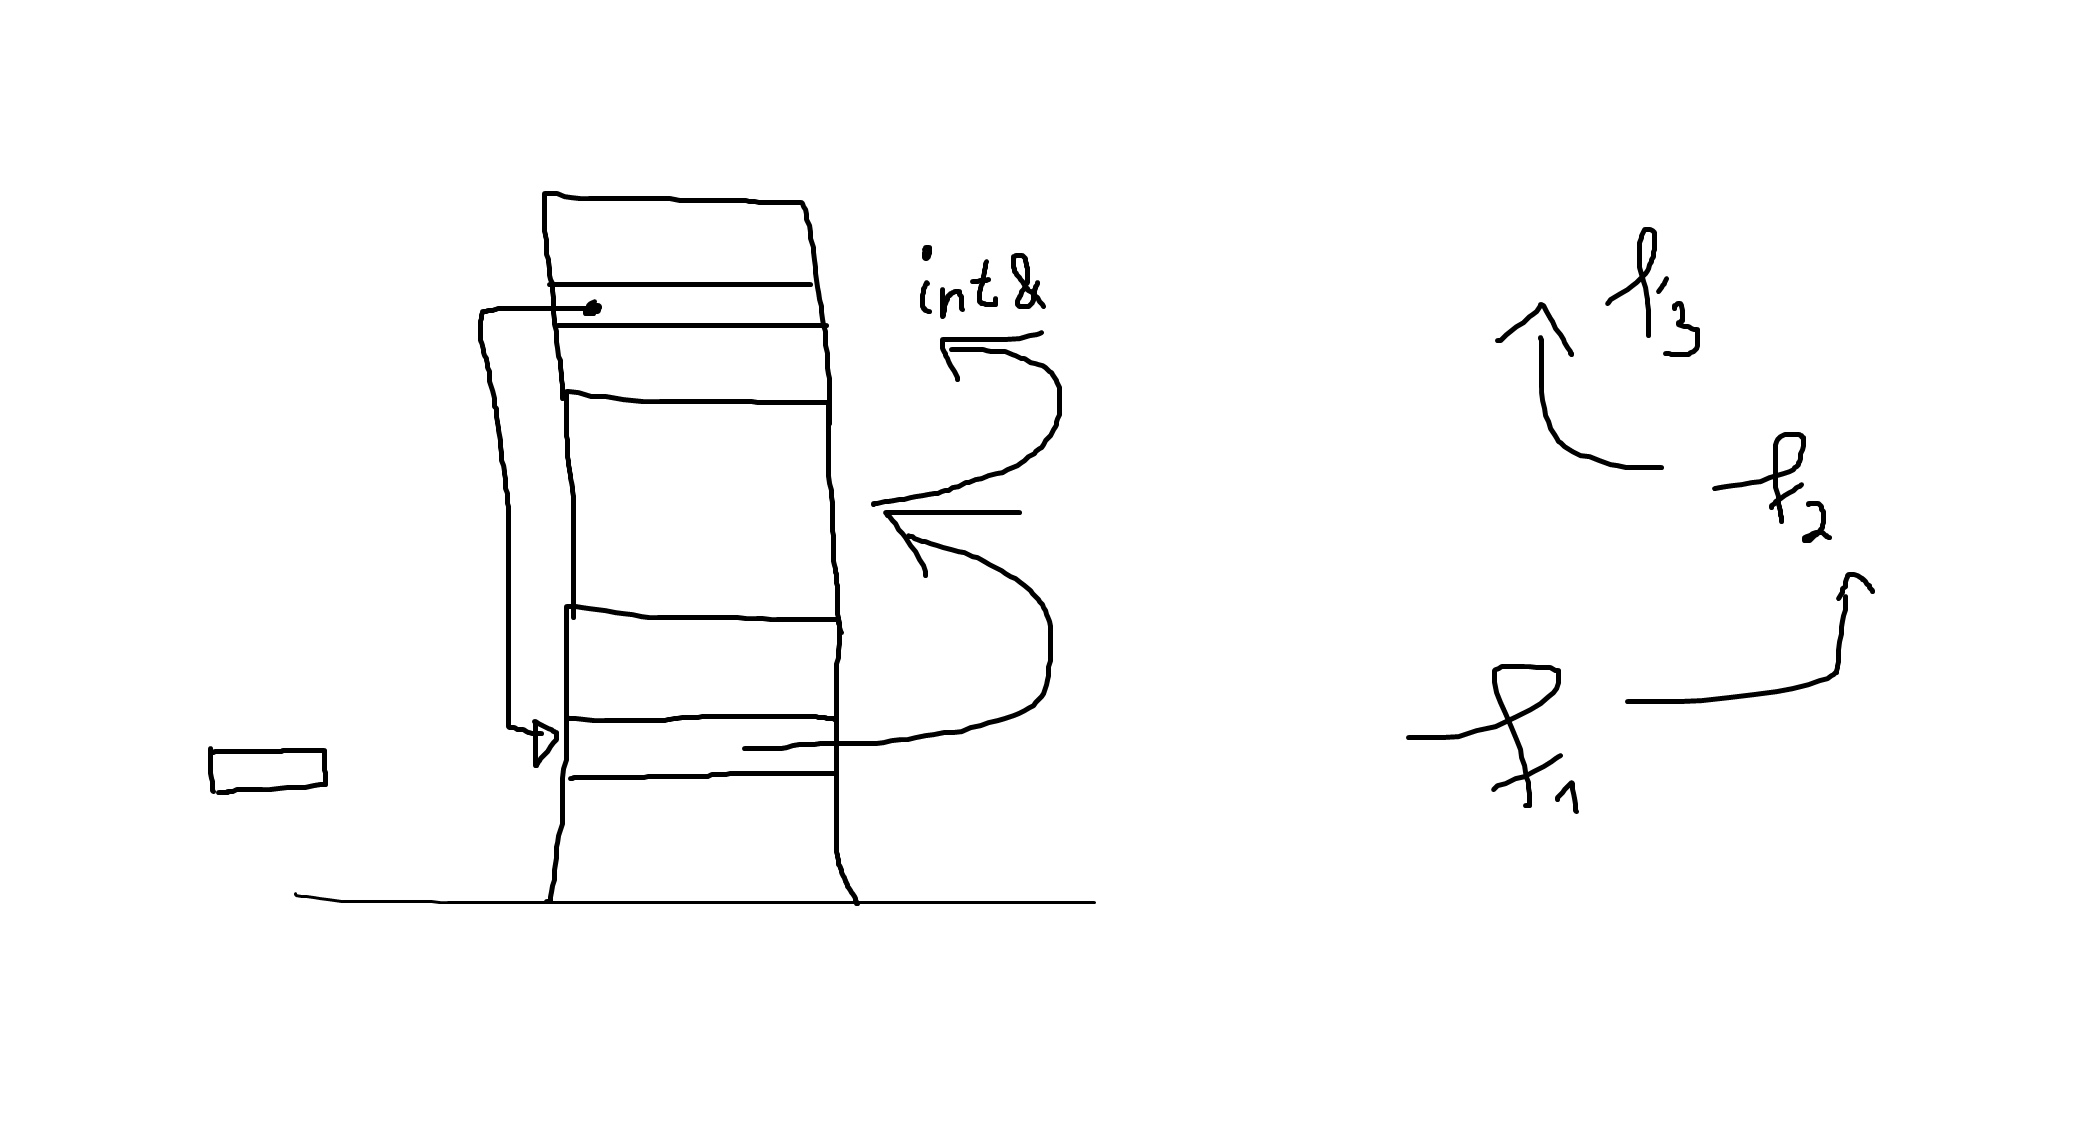 int &
f3
f2
f1